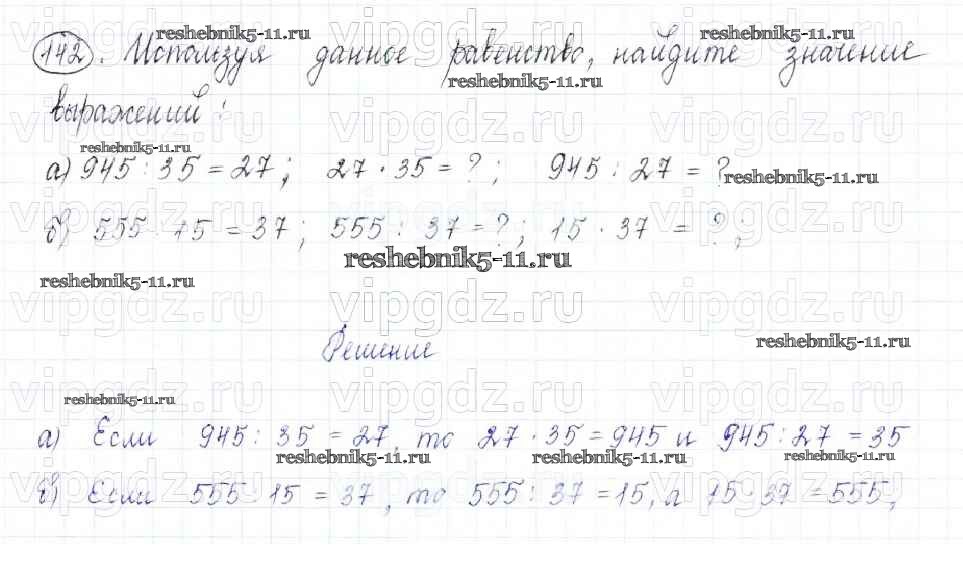 reshebnik5-11.ru reshebnik5-11.ru
vipgdz.ru vipgdz.ru vipgdz.ru
142. Используя данное равенство, найдите значение
reshebnik5-11.ru
выражений:
vipgdz.ru vipgdz.ru vipgdz.ru
reshebnik5-11.ru
а) 945 : 35 = 27; 27 · 35 = ?; 945 : 27 = ?
reshebnik5-11.ru
vipgdz.ru vipgdz.ru vipgdz.ru
б) 555 : 15 = 37; 555 : 37 = ?; 15 · 37 = ?;
reshebnik5-11.ru
reshebnik5-11.ru
vipgdz.ru vipgdz.ru vipgdz.ru
Решение
reshebnik5-11.ru
vipgdz.ru vipgdz.ru vipgdz.ru
reshebnik5-11.ru
а) Если 945 : 35 = 27, то 27 · 35 = 945 и 945 : 27 = 35
reshebnik5-11.ru reshebnik5-11.ru reshebnik5-11.ru
vipgdz.ru vipgdz.ru vipgdz.ru
б) Если 555 : 15 = 37, то 555 : 37 = 15, а 15 · 37 = 555,